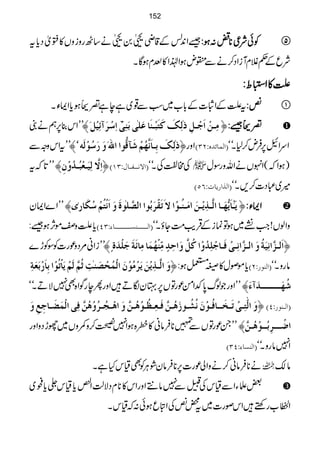 152
⑤ کوئی شرعی ناقض نہ ہو: جیسے: اندلس کے قاضی یحییٰ بن یحییٰ نے ساٹھ روزوں کا فتویٰ دیا یہ
شرع کے حکم غلام آزاد کرنے سے منقوض ہوا لہٰذا لاگو نہ ہوگا۔
علت کا استنباط:
❶ نص: یہ علت کے اثبات کے باب میں سب سے قوی ہے چاہے صراحتاً ہو یا ایماء۔
❶ صراحتاً: جیسے: ﴿مِنْ اَجْلِ ذٰلِکَ کَتَبْنَا عَلٰی بَنِیْۤ اِسْرَآئِیْلَ﴾ "اس بنا پر ہم نے بنی
اسرائیل پر فرض کر لیا۔" (المائدہ:۳۲) اور ﴿ذٰلِکَ بِاَنَّهُمْ شَآقُّوا اللهَ وَ رَسُوْلَهٗ﴾ "یہ اس وجہ سے
(ہوا کہ) انہوں نے اللہ اور رسول ﷺ کی مخالفت کی۔" (الانفال:۱۳) ﴿اِلَّا لِیَعْبُدُوْنِ﴾ "تاکہ یہ
میری عبادت کریں۔" (الذاریات:۵۶)
❷ ایماء: ﴿یٰۤاَیُّهَا الَّذِیْنَ اٰمَنُوْا لَا تَقْرَبُوا الصَّلٰوةَ وَ اَنْتُمْ سُکَارٰی﴾ "اے ایمان
والوں! جب تم نشے میں ہو تو نماز کے قریب مت جاؤ۔" (النساء:۴۳) یا علت وصف مؤثر ہو: جیسے:
﴿اَلزَّانِیَةُ وَ الزَّانِیْ فَاجْلِدُوْا کُلَّ وَاحِدٍ مِّنْهُمَا مِائَةَ جَلْدَةٍ﴾ "زانی مرد و عورت کو سو کوڑے
مارو۔" (النور:۲) یا موصول کا صلہ مستعمل ہو: ﴿وَ الَّذِیْنَ یَرْمُوْنَ الْمُحْصَنٰتِ ثُمَّ لَمْ یَاْتُوْا بِاَرْبَعَةِ
شُهَدَآءَ﴾ "اور جو لوگ پاکدامن عورتوں پر بہتان لگاتے ہیں اور پھر چار گواہ بھی نہیں لاتے۔"
(النور:۴) ﴿وَ الّٰتِیْ تَخَافُوْنَ نُشُوْزَهُنَّ فَعِظُوْهُنَّ وَ اهْجُرُوْهُنَّ فِی الْمَضَاجِعِ وَ
اضْرِبُوْهُنَّ﴾ "جن عورتوں سے تمہیں نافرمانی کا خطرہ ہو انہیں نصیحت کرو، کمروں میں چھوڑ دو اور
انہیں مارو۔" (النساء:۳۴)
مالک نے نافرمانی کرنے والی عورت پر نافرمان شوہر کو بھی قیاس کیا ہے۔
❸ بعض علماء اسے قیاس کی قبیل سے نہیں مانتے اور اس کا نام دلالت النص یا قیاس جلی یا فحویٰ
الخطاب رکھتے ہیں اس صورت میں یہ محض نص کی اتباع ہوئی نہ کہ قیاس۔